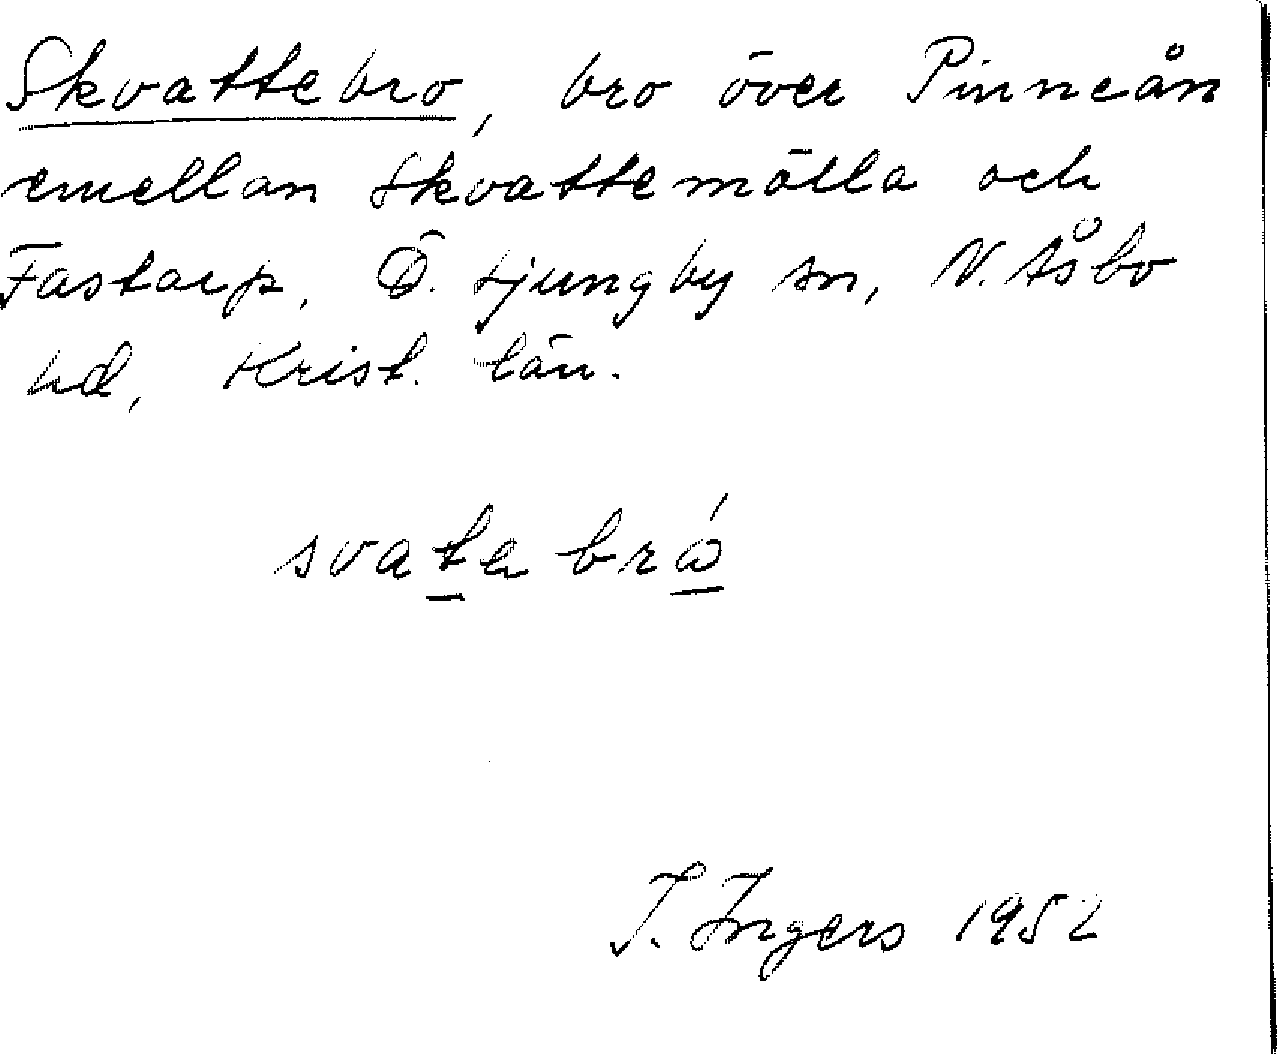 Skvattebro, bro över Pinneån
emellan Skvattemölla och
Fastarp, Ö. Ljungby sn, N. Åsbo
hd, Krist. län.
svate bró
I. Ingers 1952